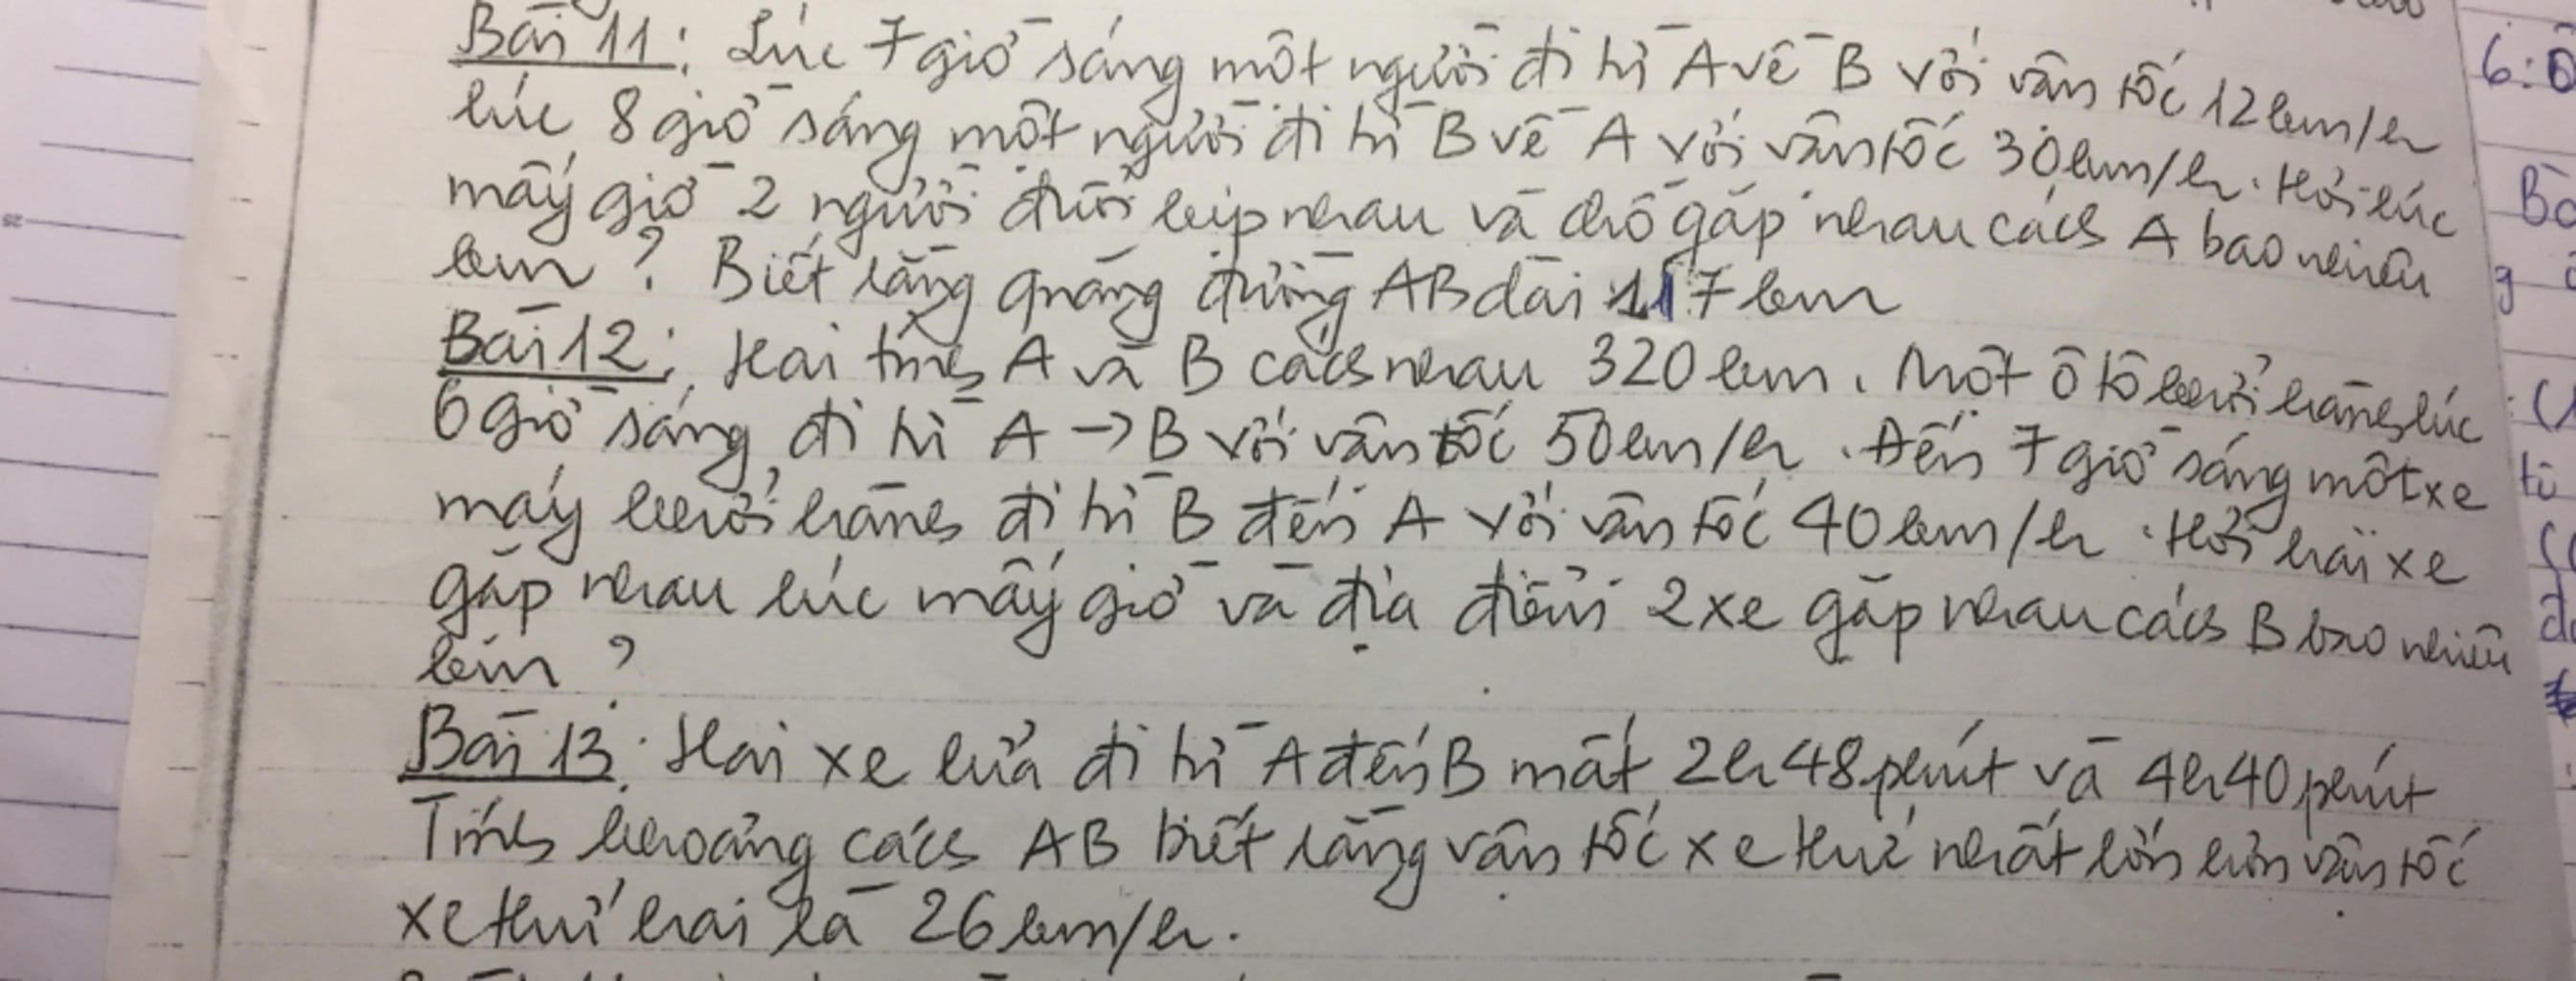 Bài 11: Lúc 7 giờ sáng một người đi từ A về B với vận tốc 12km/h
lúc 8 giờ sáng một người đi từ B về A với vận tốc 30km/h. Hỏi lúc
mấy giờ 2 người đuổi kịp nhau và chỗ gặp nhau cách A bao nhiêu
km? Biết rằng quãng đường AB dài 117km
Bài 12: Hai tỉnh A và B cách nhau 320km. Một ô tô khởi hành lúc
6 giờ sáng, đi từ A → B với vận tốc 50km/h. Đến 7 giờ sáng một xe
máy khởi hành đi từ B đến A với vận tốc 40km/h. Hỏi hai xe
gặp nhau lúc mấy giờ và địa điểm 2 xe gặp nhau cách B bao nhiêu
km?
Bài 13: Hai xe lửa đi từ A đến B mất 2h48phút và 4h40phút
Tính khoảng cách AB biết rằng vận tốc xe thứ nhất lớn hơn vận tốc
xe thứ hai là 26km/h.
6: